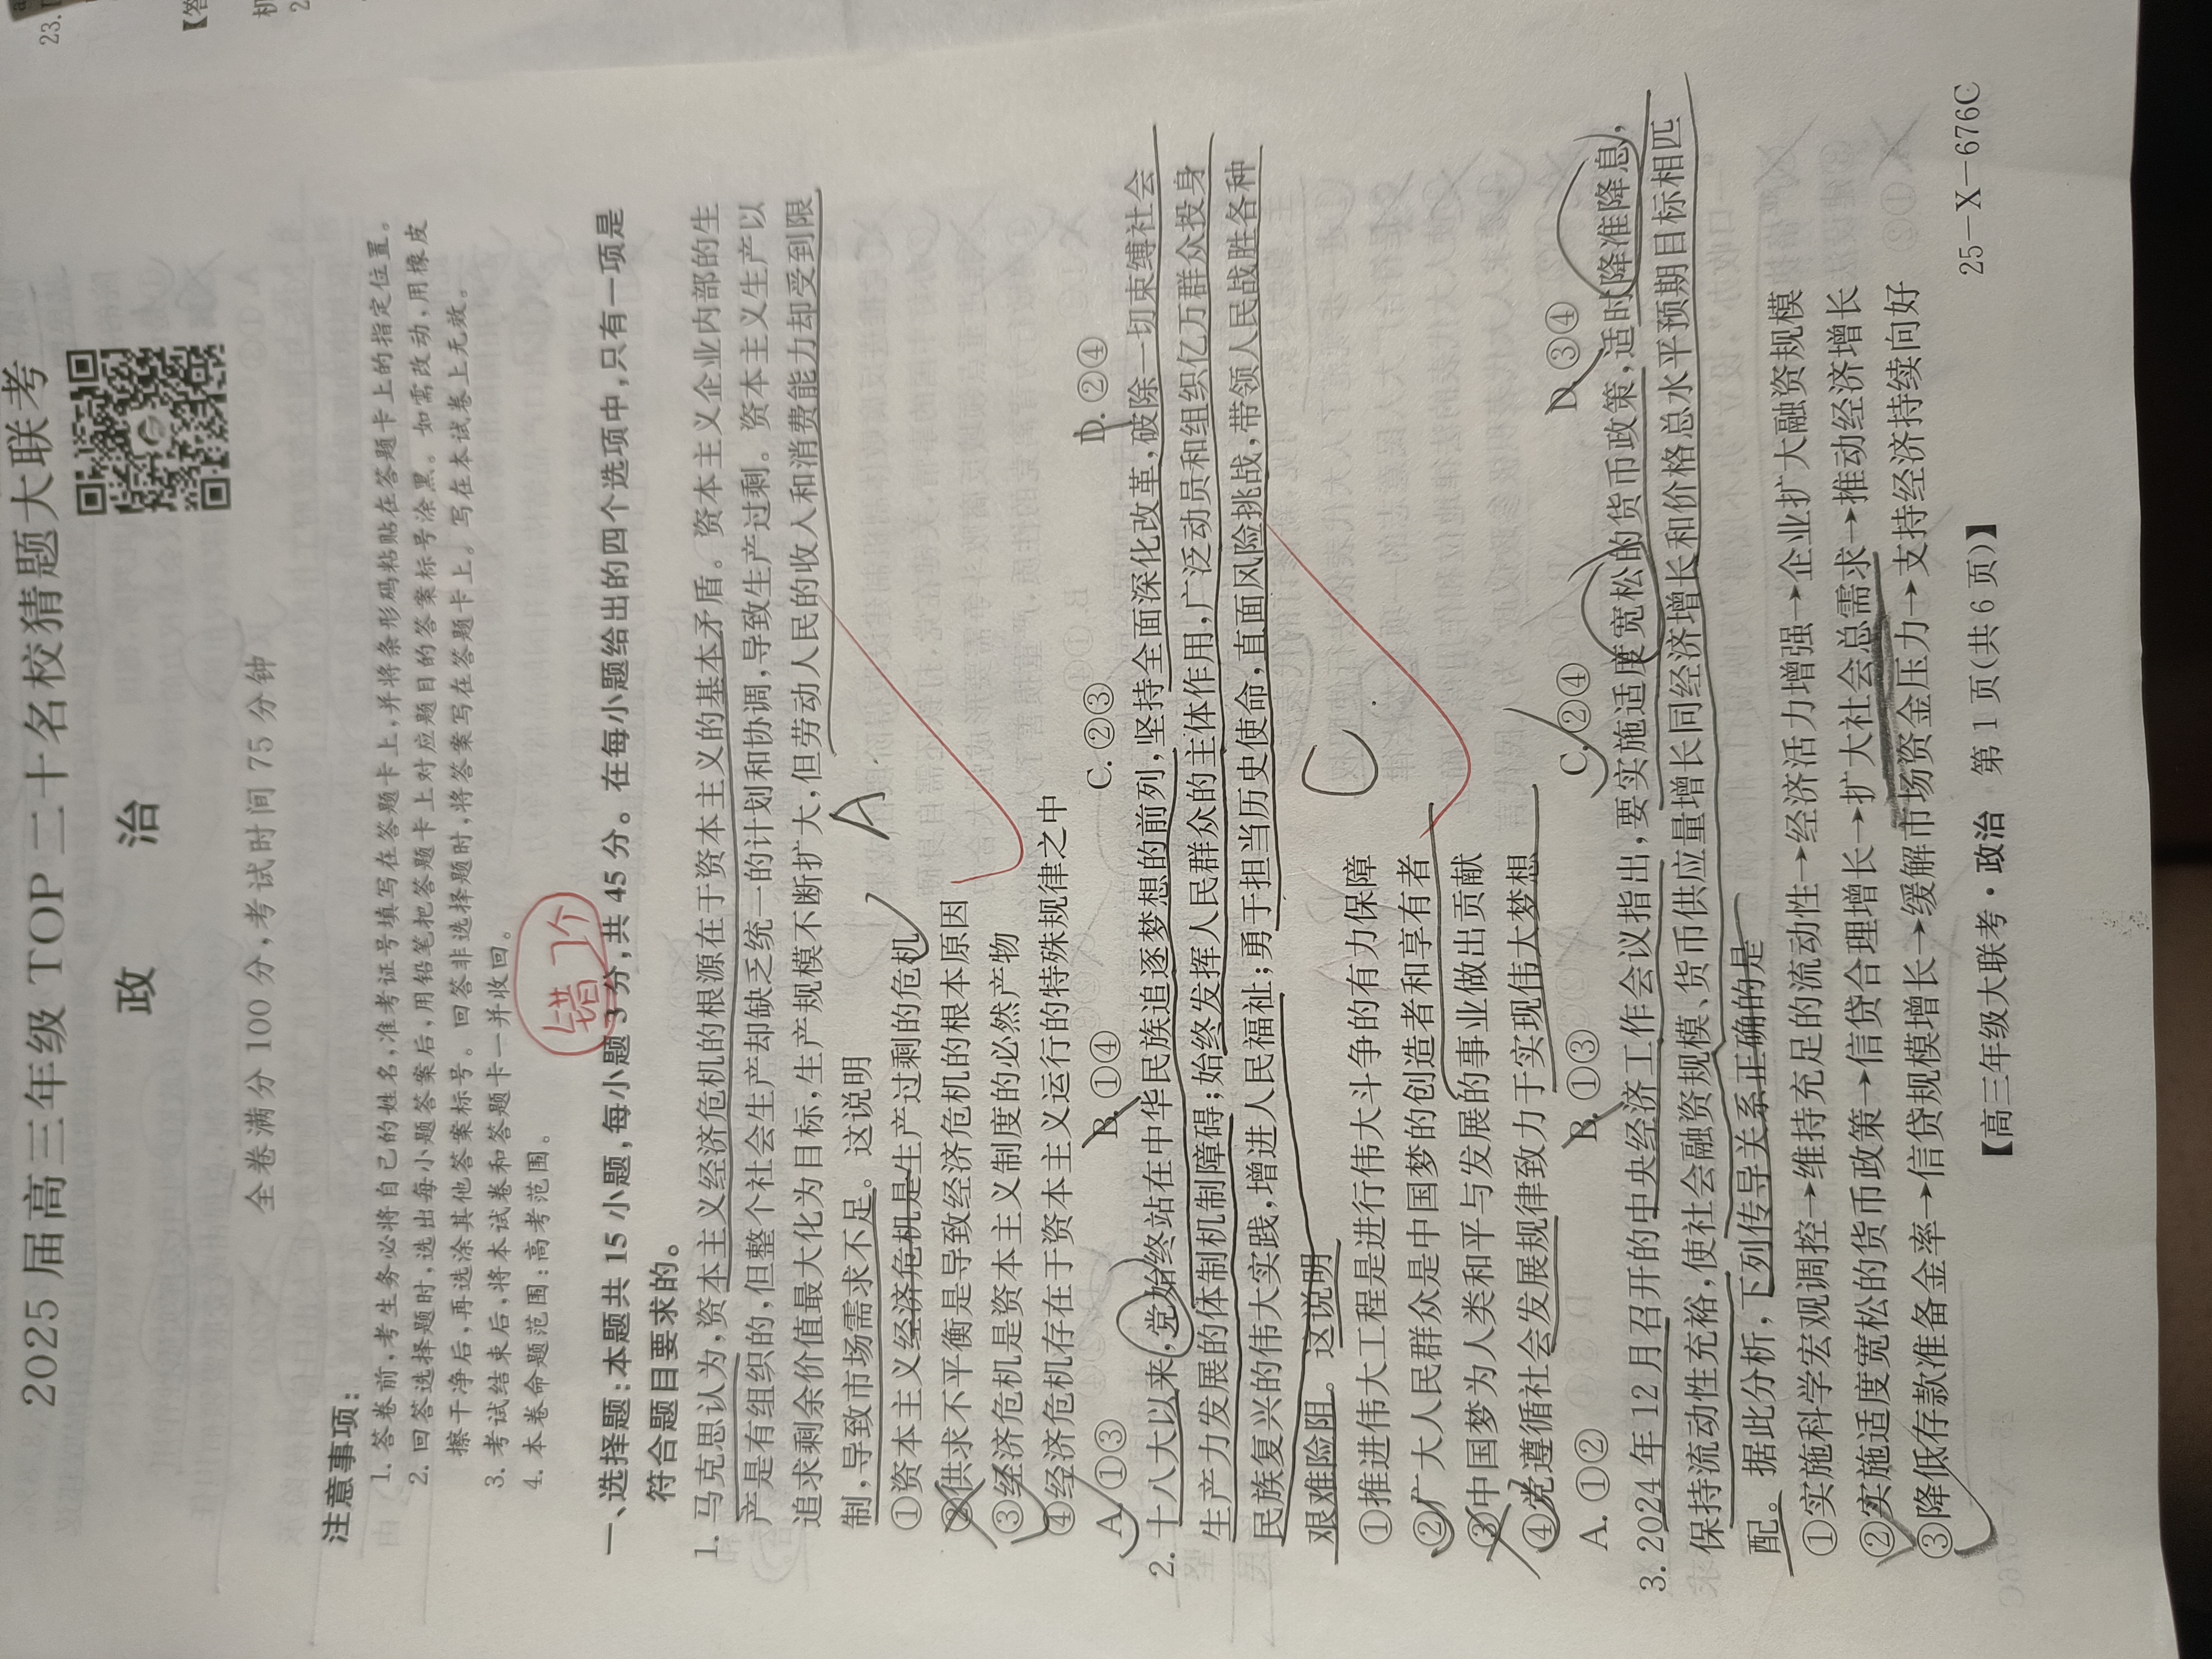 23.
【答
机
2
2025 届高三年级 TOP 二十名校猜题大联考
政 治
全卷满分 100 分,考试时间 75 分钟
注意事项:
1. 答卷前,考生务必将自己的姓名,准考证号填写在答题卡上,并将条形码粘贴在答题卡上的指定位置。
2. 回答选择题时,选出每小题答案后,用铅笔把答题卡上对应题目的答案标号涂黑。如需改动,用橡皮
擦干净后,再选涂其他答案标号。回答非选择题时,将答案写在答题卡上。写在本试卷上无效。
3. 考试结束后,将本试卷和答题卡一并收回。
4. 本卷命题范围:高考范围。
错
个
一、选择题:本题共 15 小题,每小题 3 分,共 45 分。在每小题给出的四个选项中,只有一项是
符合题目要求的。
1. 马克思认为,资本主义经济危机的根源在于资本主义的基本矛盾。资本主义企业内部的生
产是有组织的,但整个社会生产却缺乏统一的计划和协调,导致生产过剩。资本主义生产以
追求剩余价值最大化为目标,生产规模不断扩大,但劳动人民的收入和消费能力却受到限
制,导致市场需求不足。这说明
A
①资本主义经济危机是生产过剩的危机
②供求不平衡是导致经济危机的根本原因
③经济危机是资本主义制度的必然产物
④经济危机存在于资本主义运行的特殊规律之中
A. ①③ B. ①④ C. ②③ D. ②④
2. 十八大以来,党始终站在中华民族追逐梦想的前列,坚持全面深化改革,破除一切束缚社会
生产力发展的体制机制障碍;始终发挥人民群众的主体作用,广泛动员和组织亿万群众投身
民族复兴的伟大实践,增进人民福祉;勇于担当历史使命,直面风险挑战,带领人民战胜各种
艰难险阻。这说明
C
①推进伟大工程是进行伟大斗争的有力保障
②广大人民群众是中国梦的创造者和享有者
③中国梦为人类和平与发展的事业做出贡献
④党遵循社会发展规律致力于实现伟大梦想
A. ①② B. ①③ C. ②④ D. ③④
3. 2024 年 12 月召开的中央经济工作会议指出,要实施适度宽松的货币政策,适时降准降息,
保持流动性充裕,使社会融资规模、货币供应量增长同经济增长和价格总水平预期目标相匹
配。据此分析,下列传导关系正确的是
①实施科学宏观调控→维持充足的流动性→经济活力增强→企业扩大融资规模
②实施适度宽松的货币政策→信贷合理增长→扩大社会总需求→推动经济增长
③降低存款准备金率→信贷规模增长→缓解市场资金压力→支持经济持续向好
【高三年级大联考·政治 第 1 页(共 6 页)】 25-X-676C